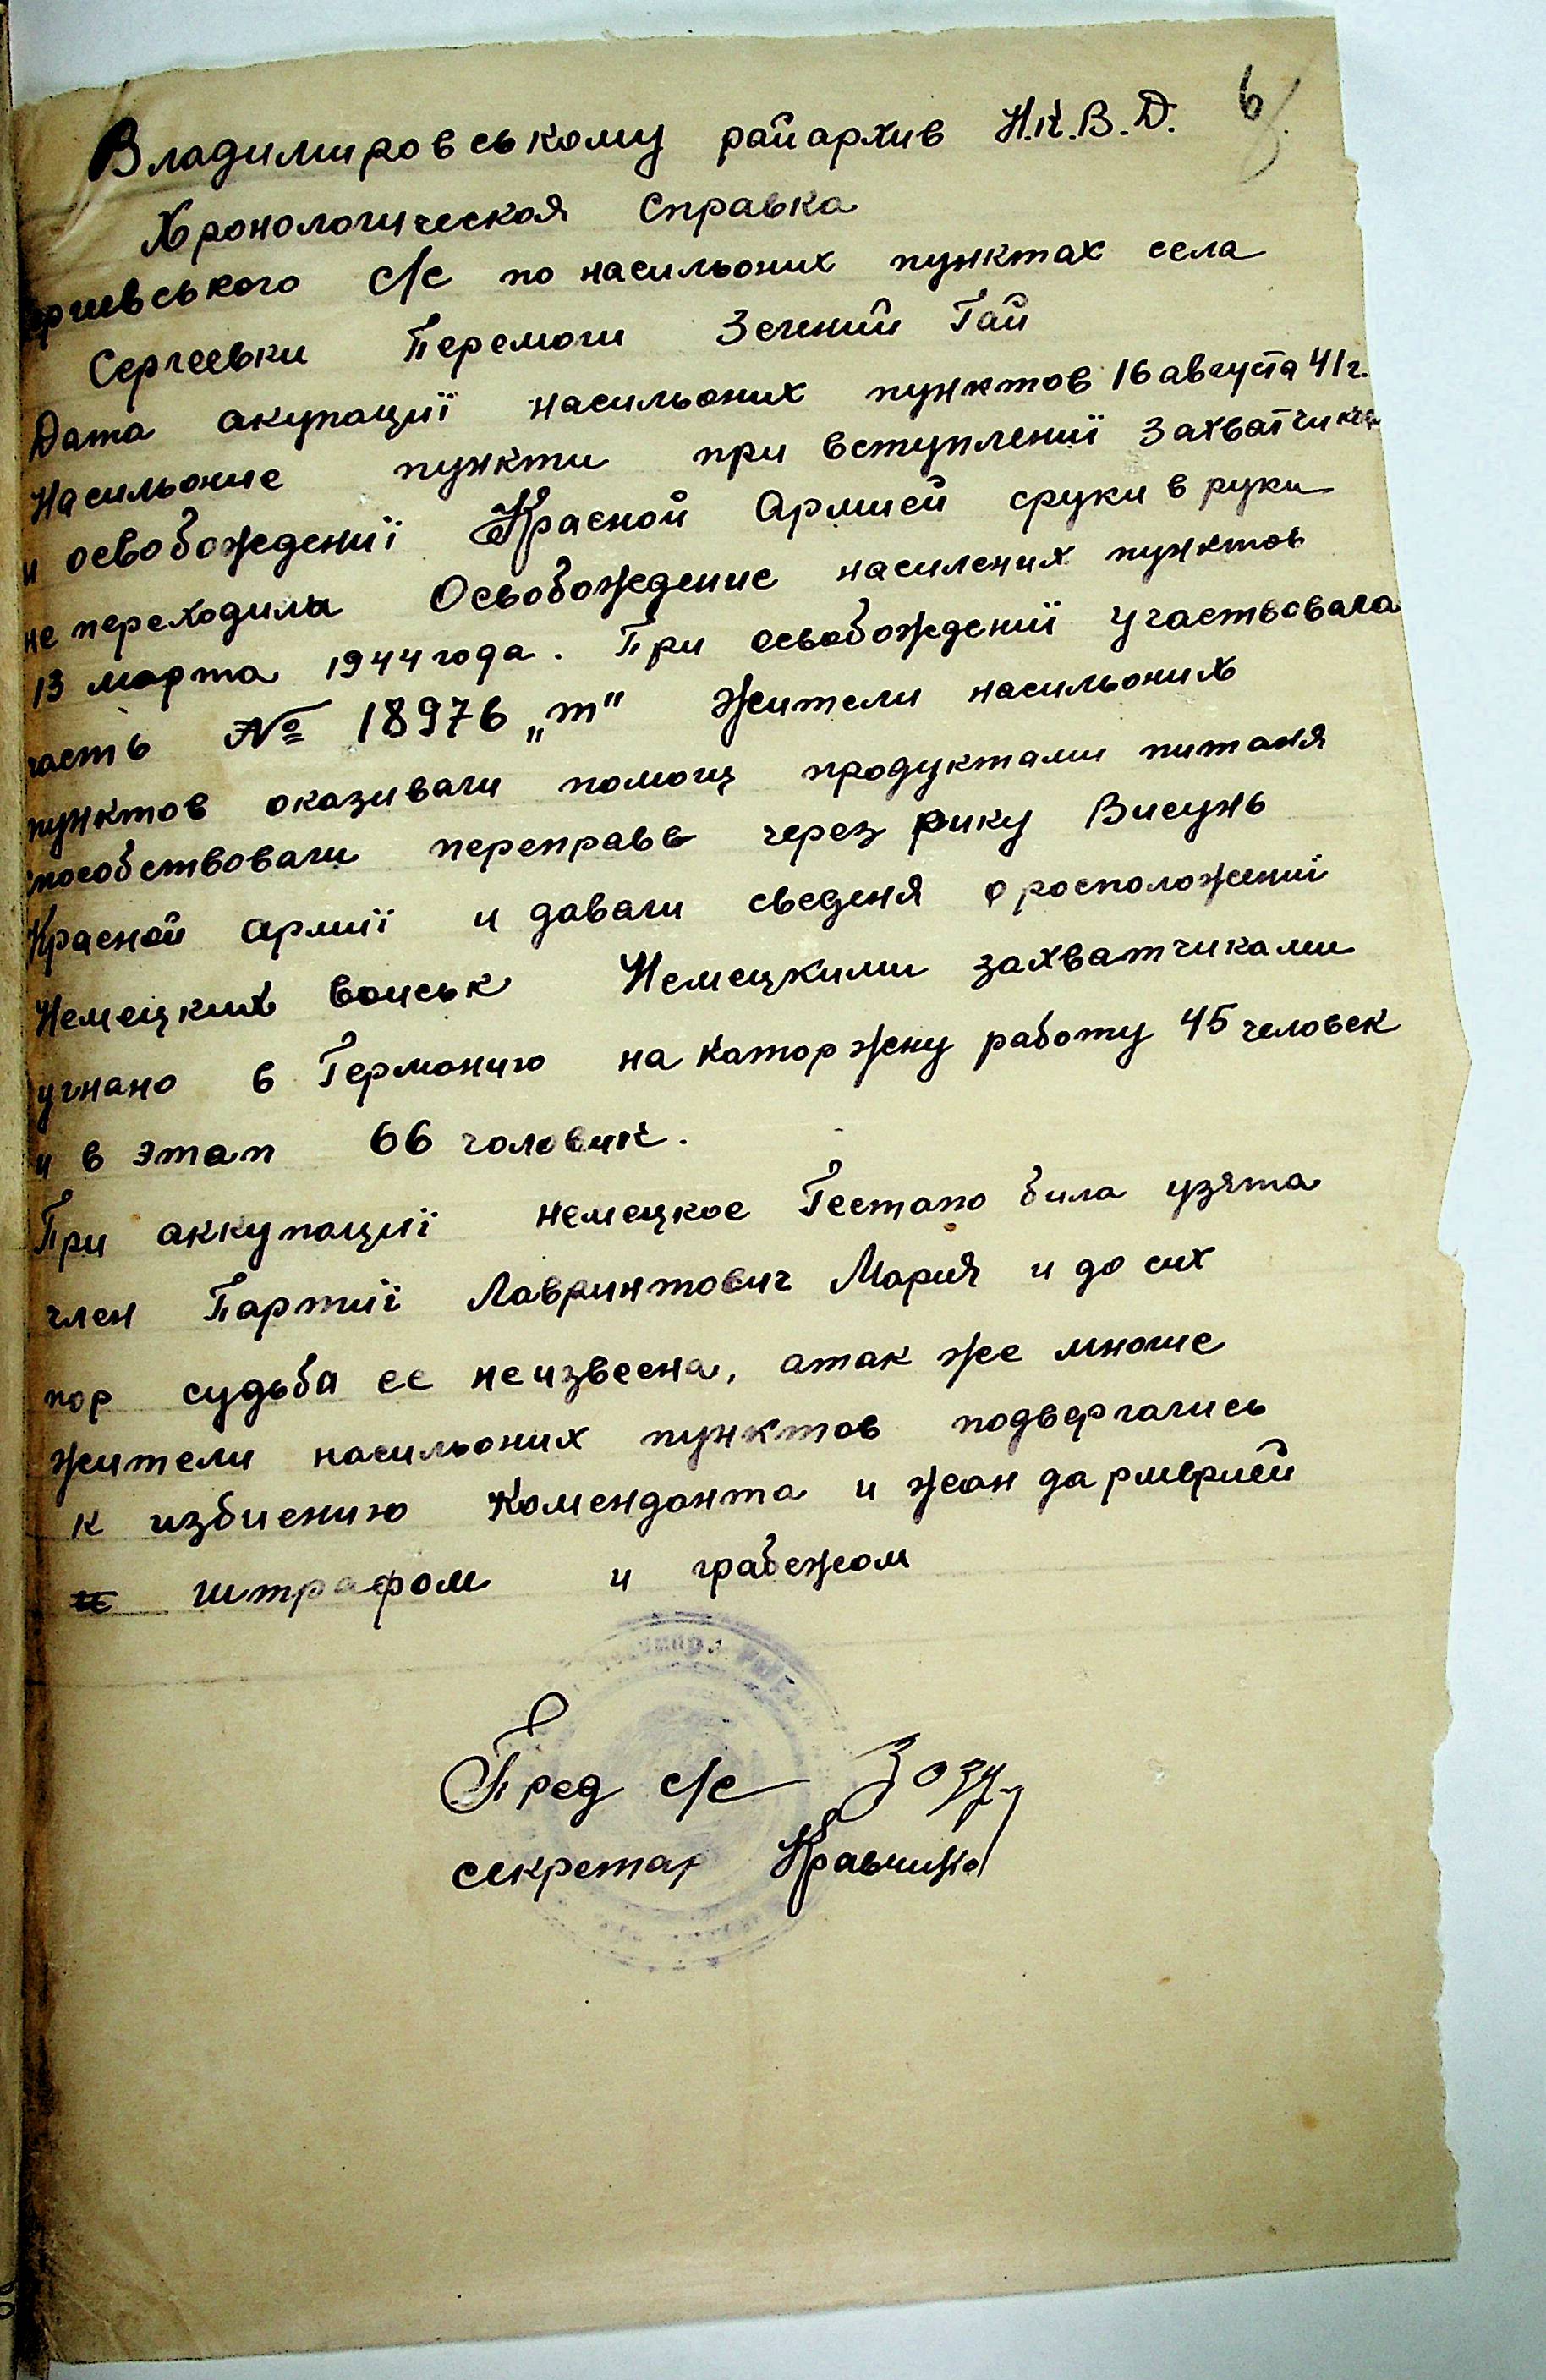 6
Владимировському райархив Н.К.В.Д.
Хронологическая справка
ргиевського с/с по насильоних пунктах села
Сергеевки Перемоги Зелений Гай
Дата акупации насильоних пунктов 16 августа 41 г.
Насильоние пункти при вступлениї захватчиков
и освобождениї Красной Армией сруки в руки
не переходили Освобождение насилених пунктов
13 марта 1944 года. При освобождениї участвовала
часть № 18976 „т" Жители насильоних
пунктов оказивали помощ продуктами питаня
способствовали переправе через рику Висунь
Красной армиї и давали сведеня о росположениї
Немецких воиськ Немецкими захватчиками
угнано в Германию на каторжену работу 45 человек
и в этап 66 чоловик.
При аккупациї немецкое Гестапо била узята
член Партиї Лавринтович Мария и до сих
пор судьба ее неизвесна, атак же многие
жители насильоних пунктов подвергались
к избиению Коменданта и жандармерией
штрафом и грабежом
Пред с/с
секретар